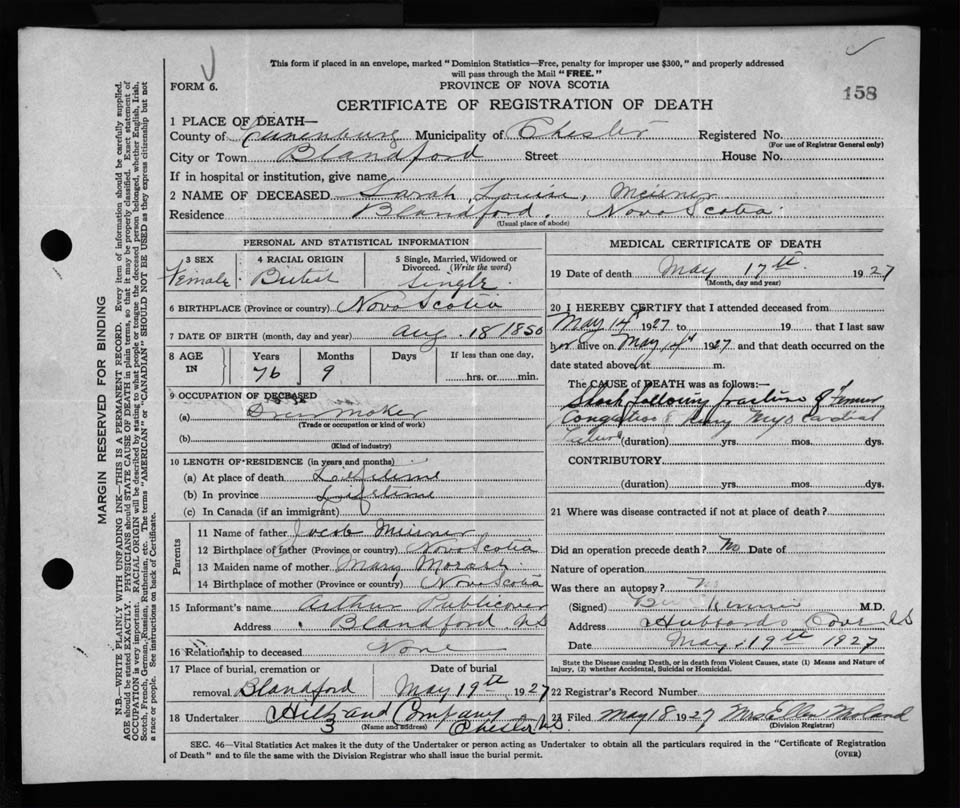 This form if placed in an envelope, marked "Dominion Statistics—Free, penalty for improper use $300," and properly addressed
will pass through the Mail "FREE."
FORM 6.
PROVINCE OF NOVA SCOTIA
158
CERTIFICATE OF REGISTRATION OF DEATH
1 PLACE OF DEATH—
County of Lunenburg Municipality of Chester Registered No.
(For use of Registrar General only)
City or Town Blandford Street House No.
If in hospital or institution, give name
2 NAME OF DECEASED Sarah, Louise, Meisner
Residence Blandford. Nova Scotia
(Usual place of abode)
PERSONAL AND STATISTICAL INFORMATION
3 SEX
Female
4 RACIAL ORIGIN
British
5 Single, Married, Widowed or
Divorced. (Write the word)
Single
6 BIRTHPLACE (Province or country) Nova Scotia
7 DATE OF BIRTH (month, day and year) Aug. 18 1850
8 AGE
IN
Years
76
Months
9
Days
If less than one day,
hrs. or min.
9 OCCUPATION OF DECEASED
(a) Dressmaker
(Trade or occupation or kind of work)
(b)
(Kind of industry)
10 LENGTH OF RESIDENCE (in years and months)
(a) At place of death Lifetime
(b) In province Lifetime
(c) In Canada (if an immigrant)
Parents
11 Name of father Jacob Meisner
12 Birthplace of father (Province or country) Nova Scotia
13 Maiden name of mother Mary Morash
14 Birthplace of mother (Province or country) Nova Scotia
15 Informant's name Arthur Publicover
Address Blandford. NS
16 Relationship to deceased None
17 Place of burial, cremation or
removal Blandford
Date of burial
May 19th 1927
18 Undertaker Hilts and Company
3 (Name and address) Chester NS
MEDICAL CERTIFICATE OF DEATH
19 Date of death May 17th 1927
(Month, day and year)
20 I HEREBY CERTIFY that I attended deceased from
May 14th 1927 to 19 that I last saw
her alive on May 14th 1927 and that death occurred on the
date stated above, at m.
The CAUSE of DEATH was as follows:—
Shock following fracture of Femur
Congestion of Myo Cardial
Failure (duration) yrs. mos. dys.
CONTRIBUTORY
(duration) yrs. mos. dys.
21 Where was disease contracted if not at place of death?
Did an operation precede death? No Date of
Nature of operation
Was there an autopsy? No
(Signed) M.D.
Address Hubbards Cove NS
Date May 19th 1927
State the Disease causing Death, or in death from Violent Causes, state (1) Means and Nature of
Injury, (2) whether Accidental, Suicidal or Homicidal.
22 Registrar's Record Number
23 Filed May 18 1927 Mrs Ellen Noland
(Division Registrar)
SEC. 46—Vital Statistics Act makes it the duty of the Undertaker or person acting as Undertaker to obtain all the particulars required in the "Certificate of Registration
of Death" and to file the same with the Division Registrar who shall issue the burial permit.
(OVER)
MARGIN RESERVED FOR BINDING
N.B.—WRITE PLAINLY WITH UNFADING INK—THIS IS A PERMANENT RECORD. Every item of information should be carefully supplied.
AGE should be stated EXACTLY. PHYSICIANS should STATE CAUSE OF DEATH in plain terms, so that it may be properly classified. Exact statement of
OCCUPATION is very important. RACIAL ORIGIN will be described by stating to what people or tongue the deceased person belonged, whether English, Irish,
Scotch, French, German, Russian, Ruthenian, etc. The terms "AMERICAN" or "CANADIAN" SHOULD NOT BE USED as they express citizenship but not
a race or people. See instructions on back of Certificate.